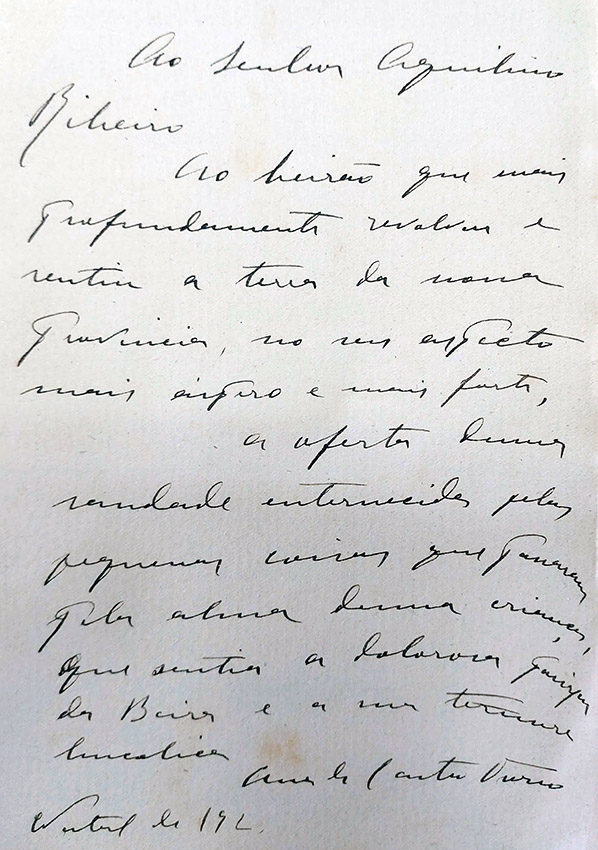 Ao Senhor Aquilino
Ribeiro
Ao beirão que mais
profundamente revolveu e
sentiu a terra da nossa
Provincia, no seu aspécto
mais áspero e mais forte,
a oferta duma
saudade enternecida pelas
pequenas coisas que passaram
pela alma duma criança,
que sentia a dolorosa
da Beira e a sua ternura
bucolica
Ana de Castro Osorio
de 192